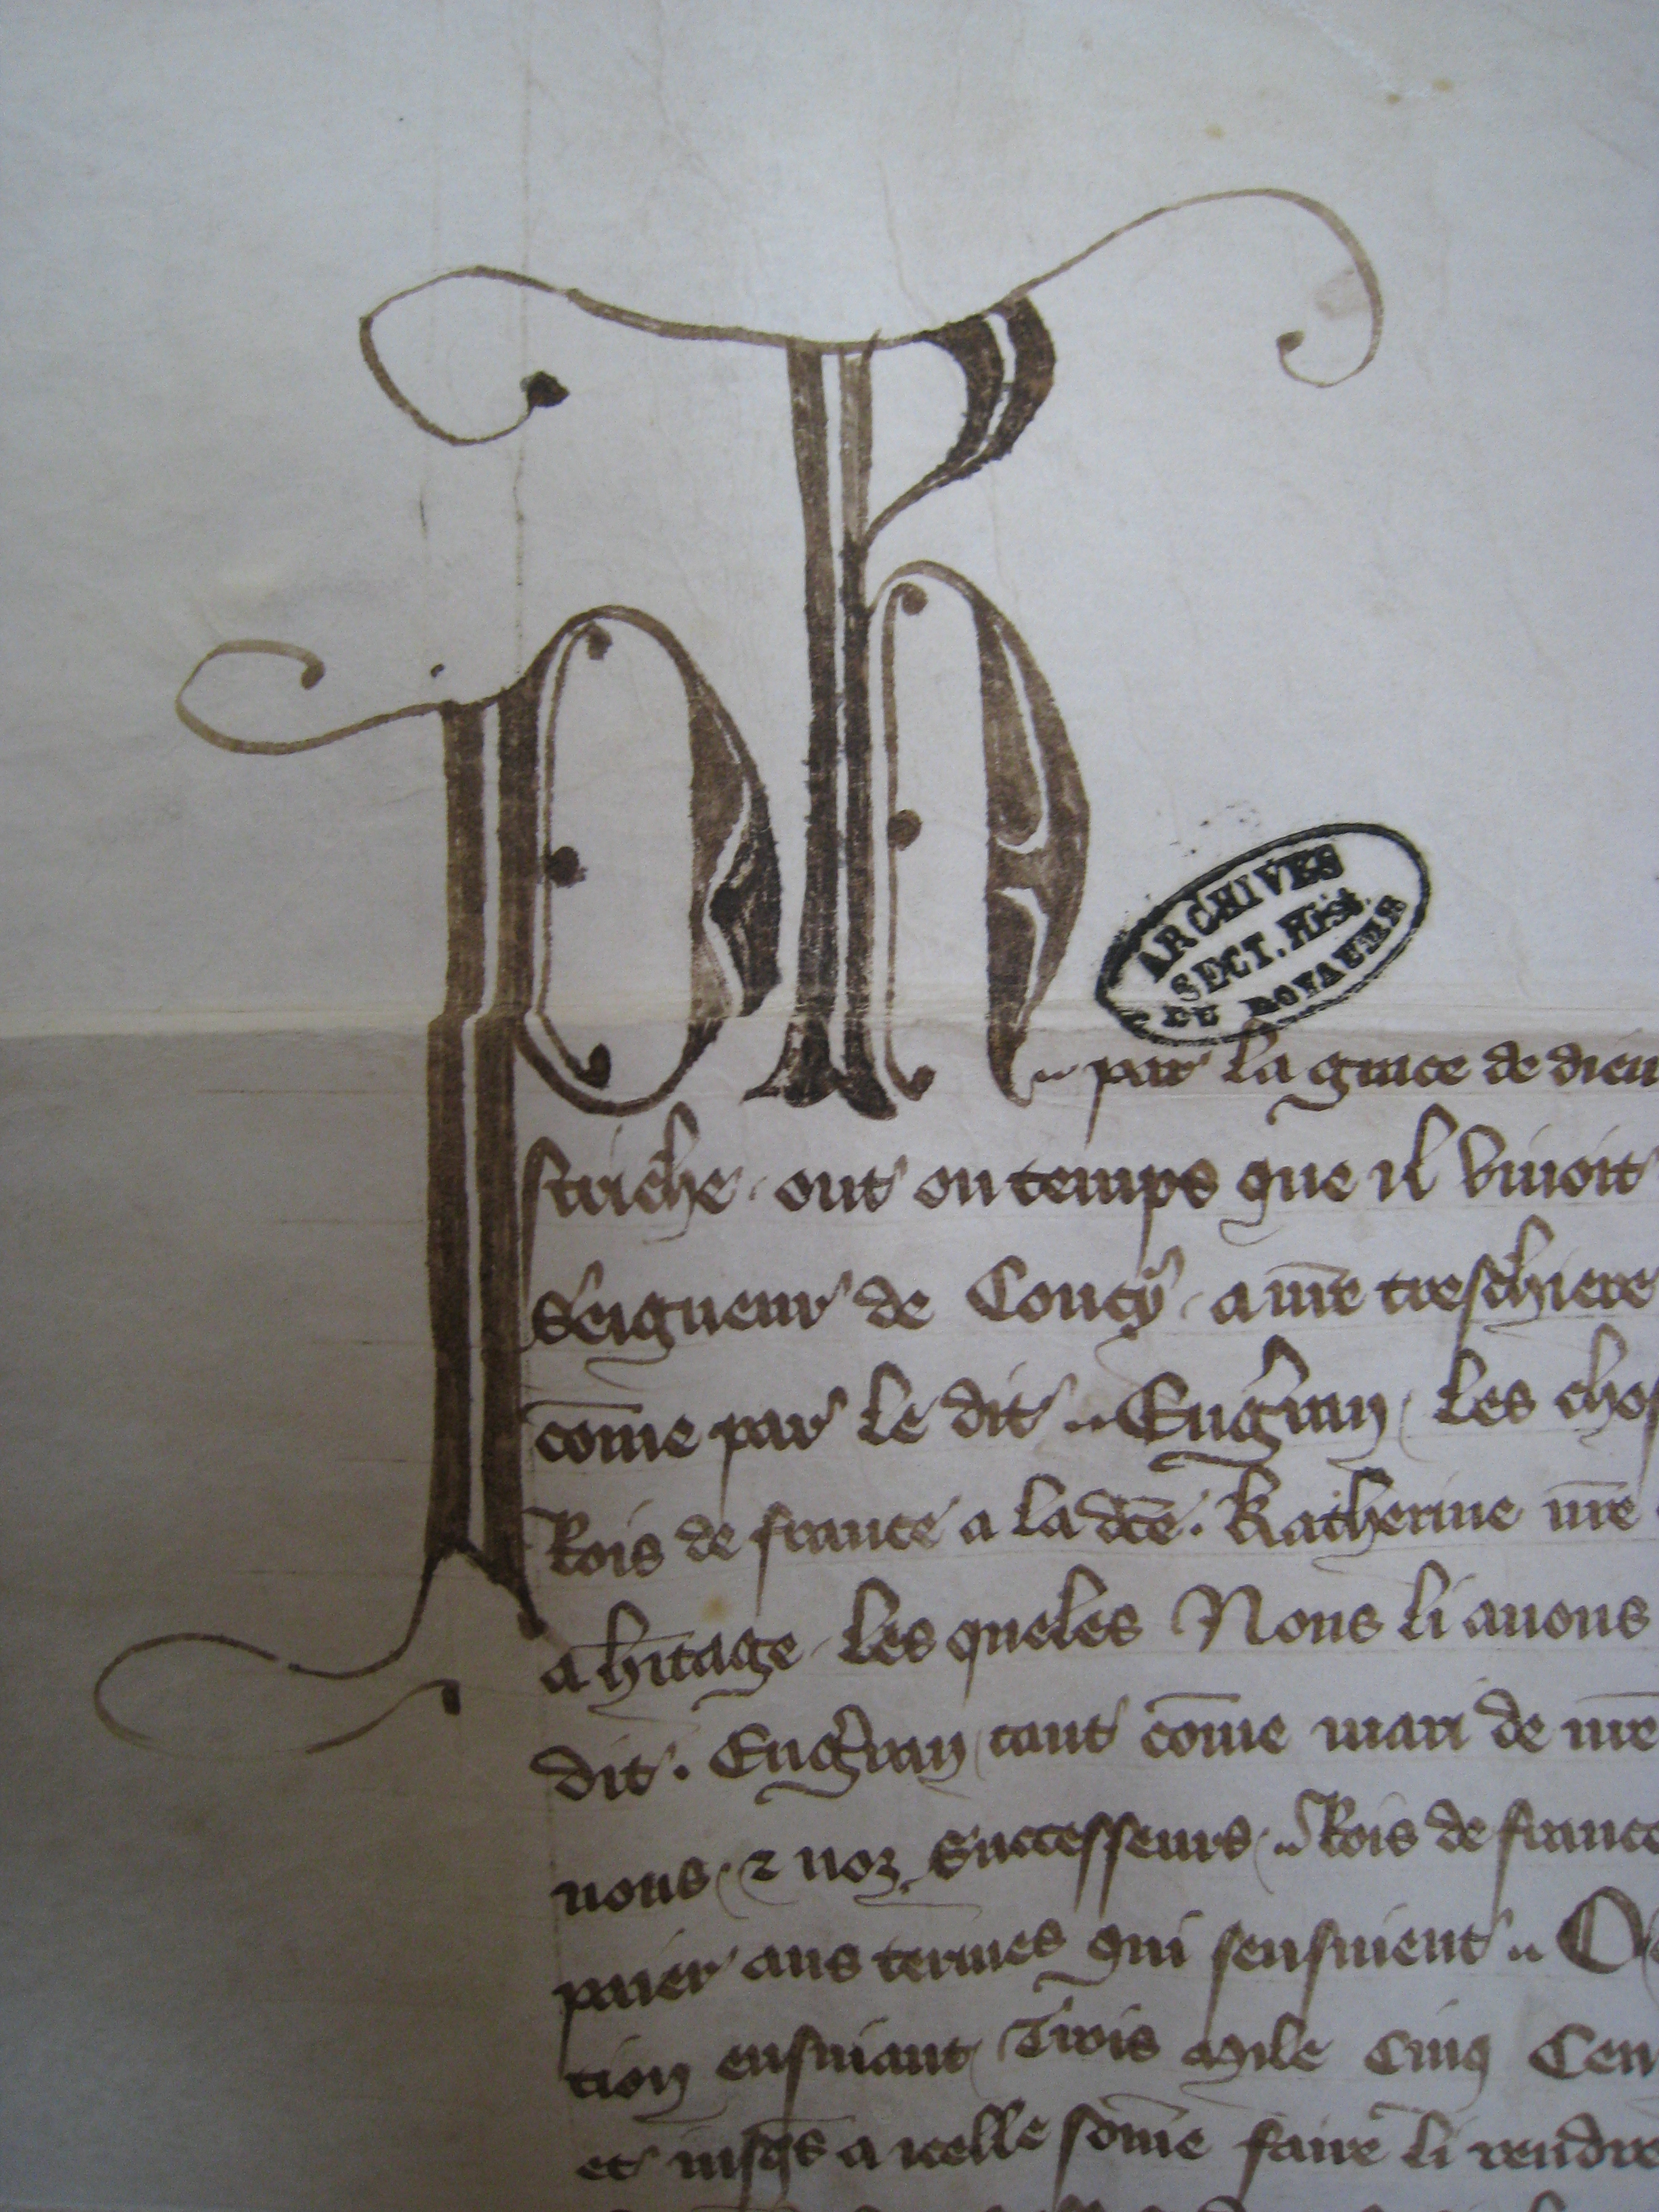 Ph
ARCHIVES
SECT. Hist.
DU ROYAUME
.. par la grace de dieu
striche . out ou temps que il viuoit
Seigneur de Coucy . a nr̄e treschiere
cōme par le dit .. Eng̾ran / les chos
Rois de france a la dc̄e . Katherine nr̄e
a h̾itage . les queles Nous li auons
dit . Eng̾ran / tant cōme mari de nr̄e
nous . ⁊ noz Successeurs .. Rois de france
paier aus termes qui sensuient ..
tion ensuiant / Trois mile Cinq Cen
et iusq̄s a icelle sōme faire li rendre